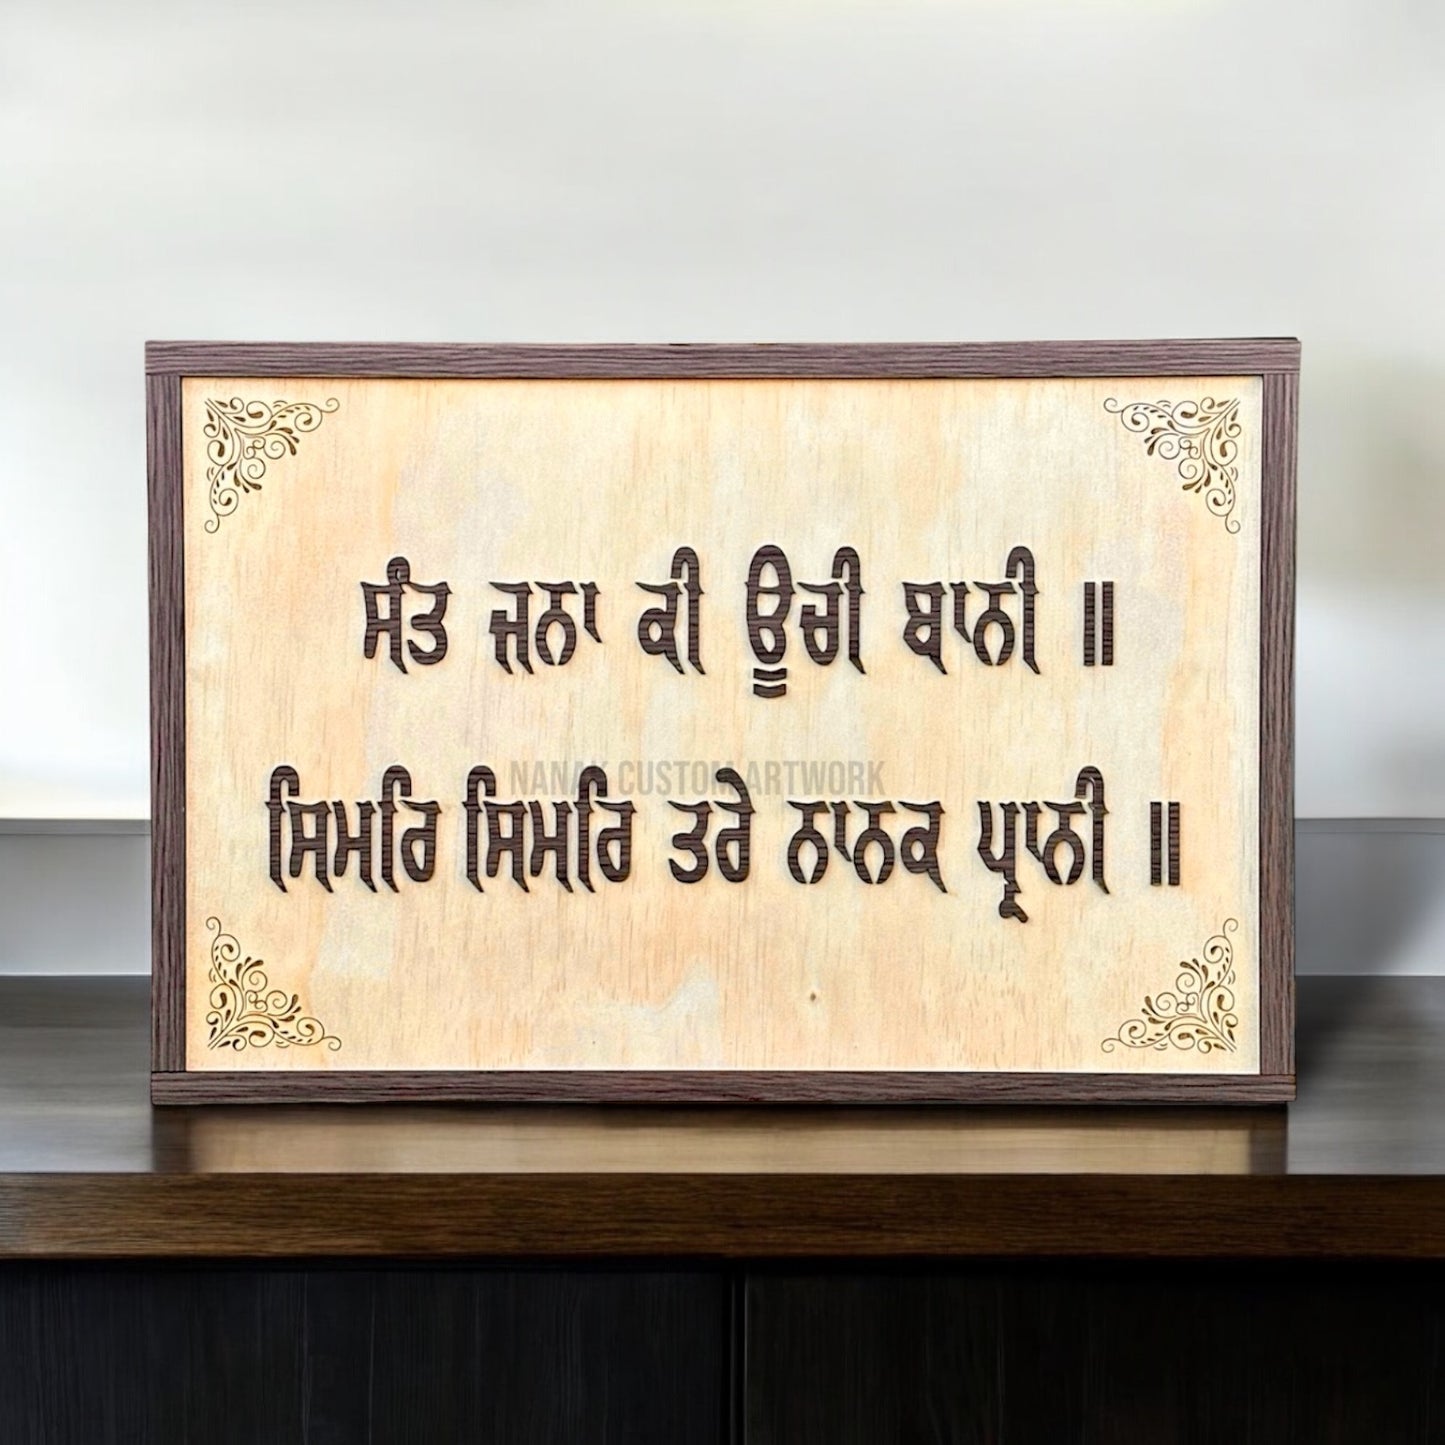 ਸੰਤ ਜਨਾ ਕੀ ਊਚੀ ਬਾਨੀ ॥
NANAK CUSTOM ARTWORK
ਸਿਮਰਿ ਸਿਮਰਿ ਤਰੇ ਨਾਨਕ ਪ੍ਰਾਨੀ ॥